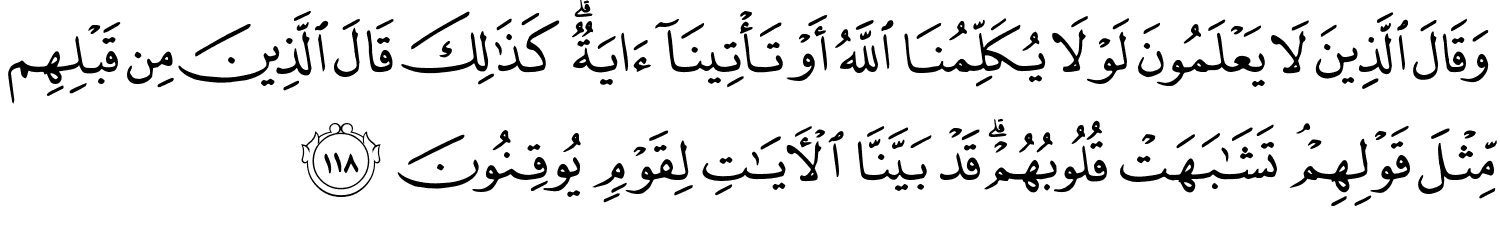 وَقَالَ ٱلَّذِينَ لَا يَعْلَمُونَ لَوْلَا يُكَلِّمُنَا ٱللَّهُ أَوْ تَأْتِينَآ ءَايَةٌۗ كَذَٰلِكَ قَالَ ٱلَّذِينَ مِن قَبْلِهِم
مِّثْلَ قَوْلِهِمْۘ تَشَٰبَهَتْ قُلُوبُهُمْۗ قَدْ بَيَّنَّا ٱلْأَيَٰتِ لِقَوْمٍ يُوقِنُونَ ١١٨